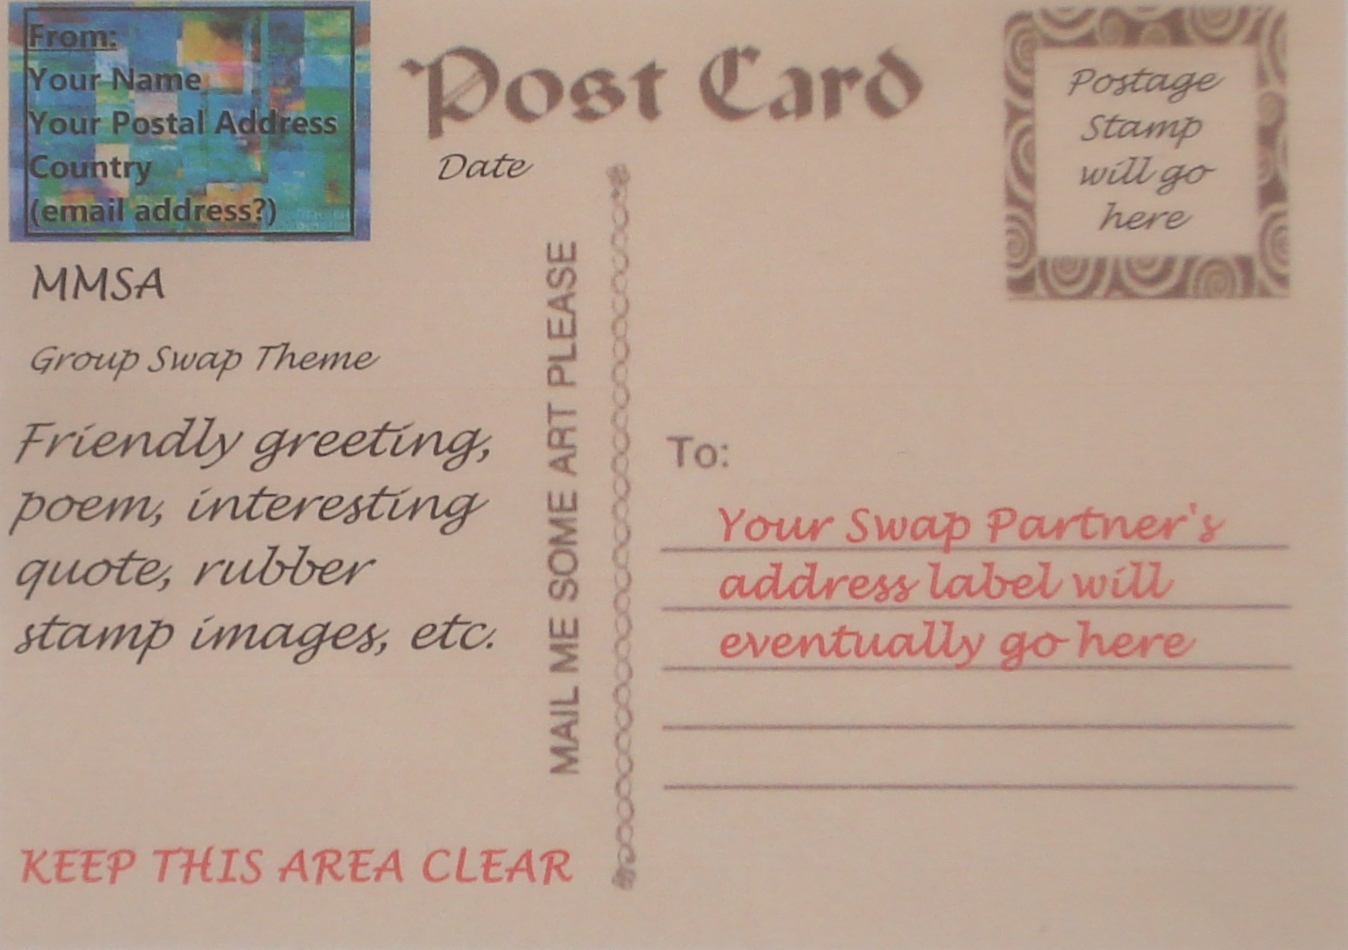 From:
Your Name
Your Postal Address
Country
(email address?)
Post Card
Date
Postage
Stamp
will go
here
MMSA
Group Swap Theme
Friendly greeting,
poem, interesting
quote, rubber
stamp images, etc.
MAIL ME SOME ART PLEASE
To:
Your Swap Partner's
address label will
eventually go here
KEEP THIS AREA CLEAR